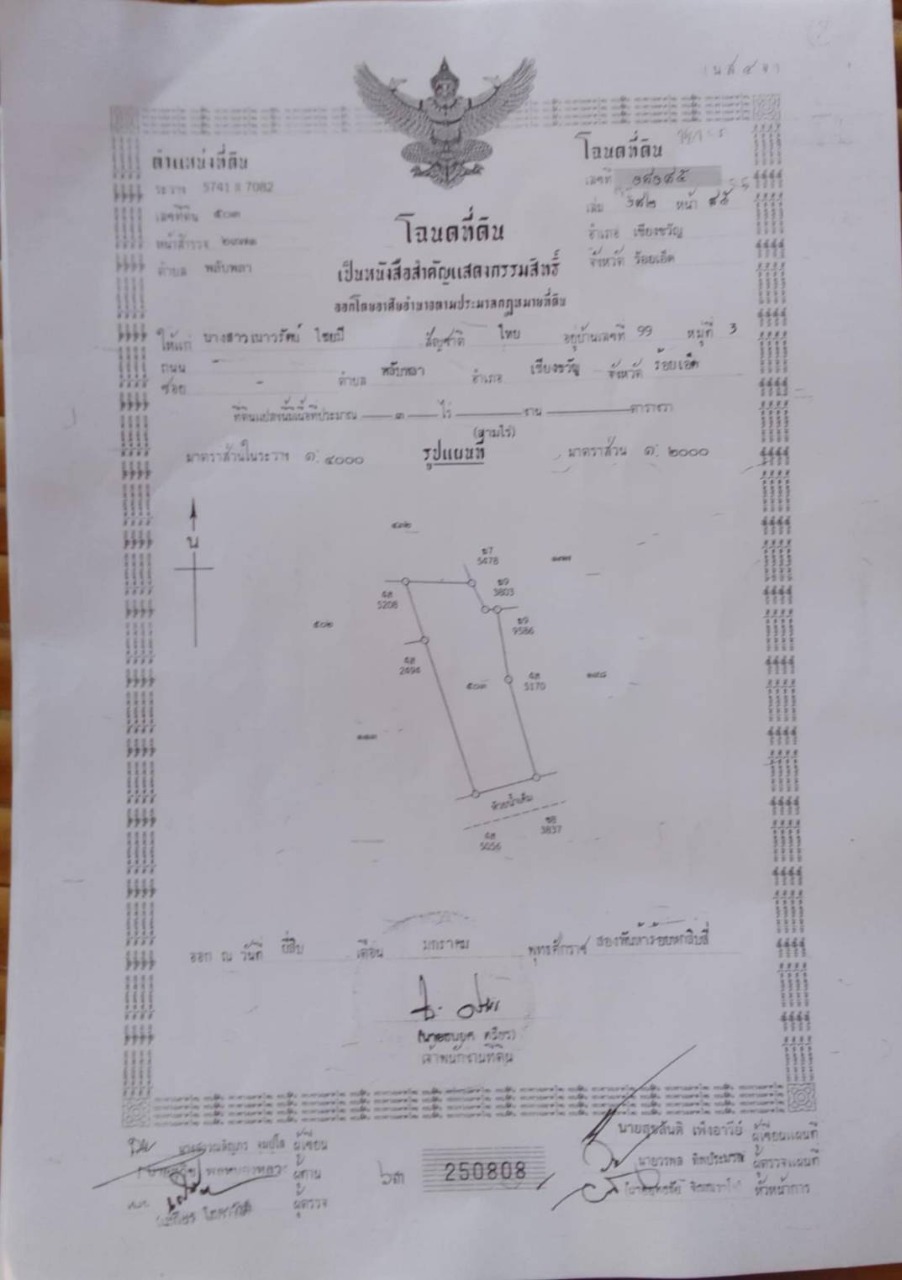 (น.ส.๔ จ)
ตำแหน่งที่ดิน
ระวาง 5741 II 7082
เลขที่ดิน ๕๐๓
หน้าสำรวจ
ตำบล พลับพลา
โฉนดที่ดิน
เลขที่
เล่ม หน้า
อำเภอ เชียงขวัญ
จังหวัด ร้อยเอ็ด
โฉนดที่ดิน
เป็นหนังสือสำคัญแสดงกรรมสิทธิ์
ออกโดยอาศัยอำนาจตามประมวลกฎหมายที่ดิน
ให้แก่ นางสาวเนาวรัตน์ ไชยมี สัญชาติ ไทย อยู่บ้านเลขที่ 99 หมู่ที่ 3
ถนน -
ซอย - ตำบล พลับพลา อำเภอ เชียงขวัญ จังหวัด ร้อยเอ็ด
ที่ดินแปลงนี้มีเนื้อที่ประมาณ ๓ ไร่ งาน ตารางวา
(สามไร่)
มาตราส่วนในระวาง ๑: ๔๐๐๐ รูปแผนที่ มาตราส่วน ๑: ๒๐๐๐
น
๔๐๒
ช7
5478
ฉส
5208
ช9
3803
๕๐๒
ช9
9586
ฉส
2494
๕๐๓
ฉส
5170
ห้วยน้ำเค็ม
ฉส
5056
ช8
3837
ออก ณ วันที่ ยี่สิบ เดือน มกราคม พุทธศักราช สองพันห้าร้อยหกสิบสี่
เจ้าพนักงานที่ดิน
ผู้เขียน
ผู้ทาน
ผู้ตรวจ
๖๓ 250808
นายสุขสันติ เพ็งอารีย์ ผู้เขียนแผนที่
ผู้ตรวจแผนที่
หัวหน้าการ